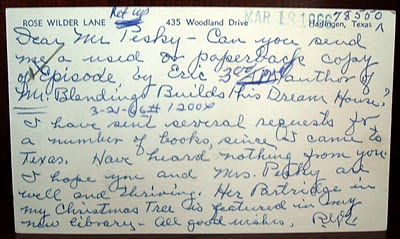 Ret ups
ROSE WILDER LANE 435 Woodland Drive MAR 18 1966 78550
Harlingen, Texas
Dear Mr. Peshy - Can you send
me a used or paperback copy
of Episode by Eric author of
Mr. Blanding Builds His Dream House?
3-21-66 # 1200x
I have sent several requests for
a number of books, since I came to
Texas. Have heard nothing from you.
I hope you and Mrs. Peshy are
well and thriving. Her Partridge in
my Christmas Tree is featured in my
new library - All good wishes, RWL